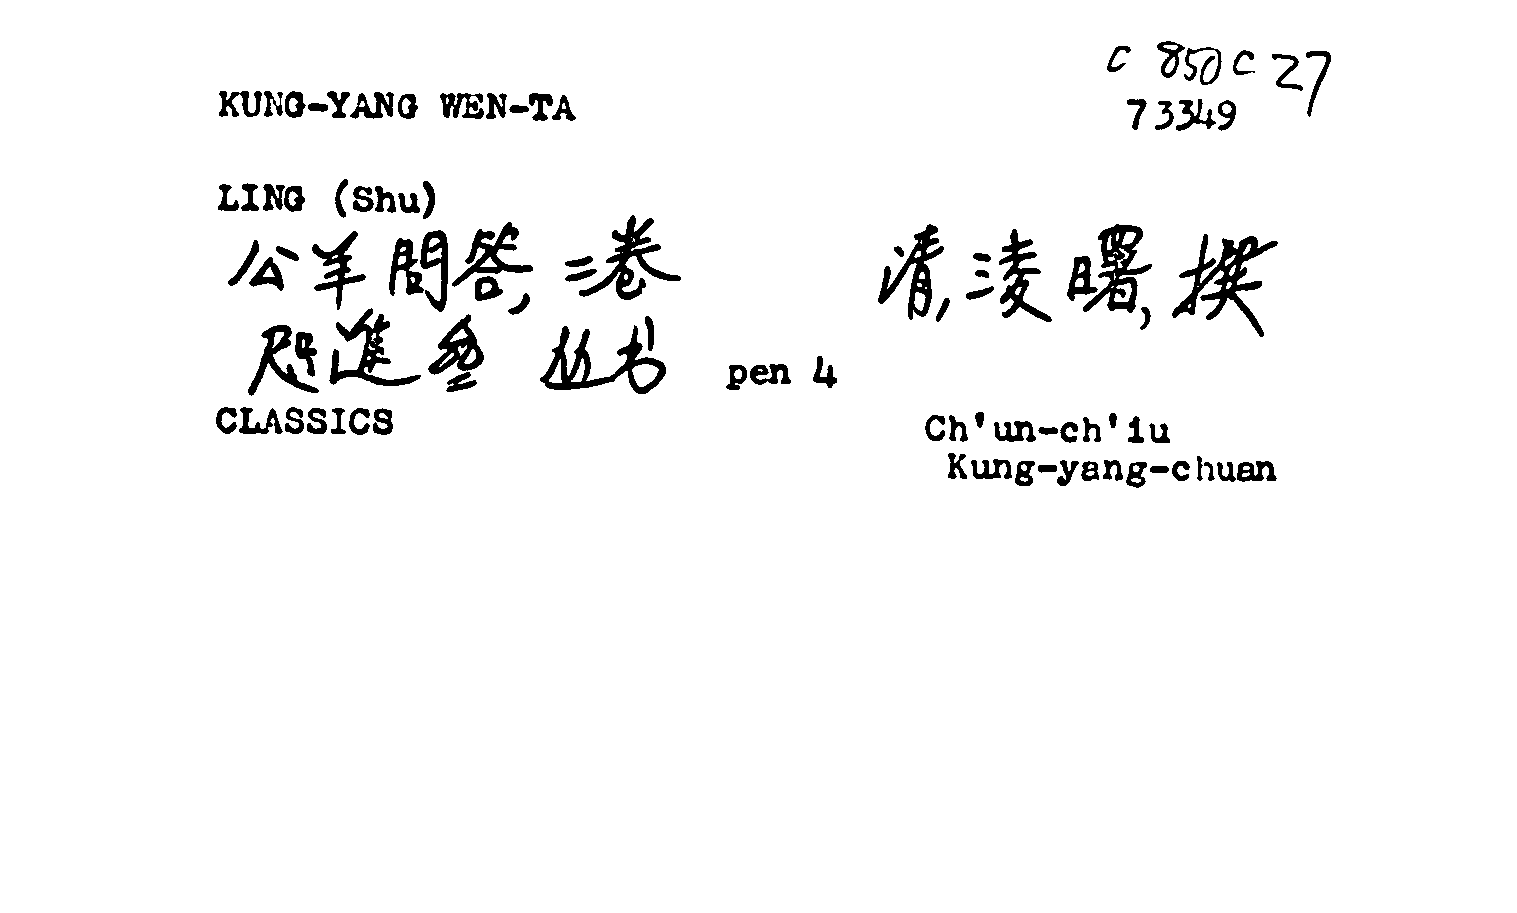 C 850 C 27
KUNG-YANG WEN-TA
73349
LING (Shu)
公羊問答, 二卷 清, 淩曙, 撰
咫進齋 丛书 pen 4
CLASSICS
Ch'un-ch'iu
Kung-yang-chuan